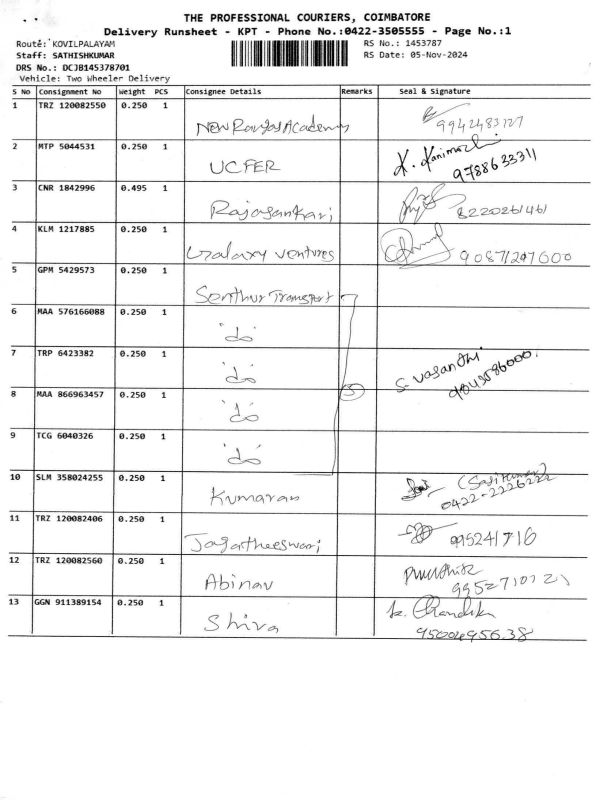 THE PROFESSIONAL COURIERS, COIMBATORE
Delivery Runsheet - KPT - Phone No.:0422-3505555 - Page No.:1
Route: KOVILPALAYAM RS No.: 1453787
Staff: SATHISHKUMAR RS Date: 05-Nov-2024
DRS No.: DCJB145378701
Vehicle: Two Wheeler Delivery
S No Consignment No Weight PCS Consignee Details Remarks Seal & Signature
1 TRZ 120082550 0.250 1 Academy
2 MTP 5044531 0.250 1 UCFER K. Kanimozhi 9788633311
3 CNR 1842996 0.495 1 8220261461
4 KLM 1217885 0.250 1 Galaxy Ventures
5 GPM 5429573 0.250 1 Senthur Transport
6 MAA 576166088 0.250 1 'do'
7 TRP 6423382 0.250 1 'do' S. Vasanthi
8 MAA 866963457 0.250 1 'do' 5
9 TCG 6040326 0.250 1 'do'
10 SLM 358024255 0.250 1 Kumaran 0422-2226222
11 TRZ 120082406 0.250 1 Jagatheeswari
12 TRZ 120082560 0.250 1 Abinav
13 GGN 911389154 0.250 1 Shiva